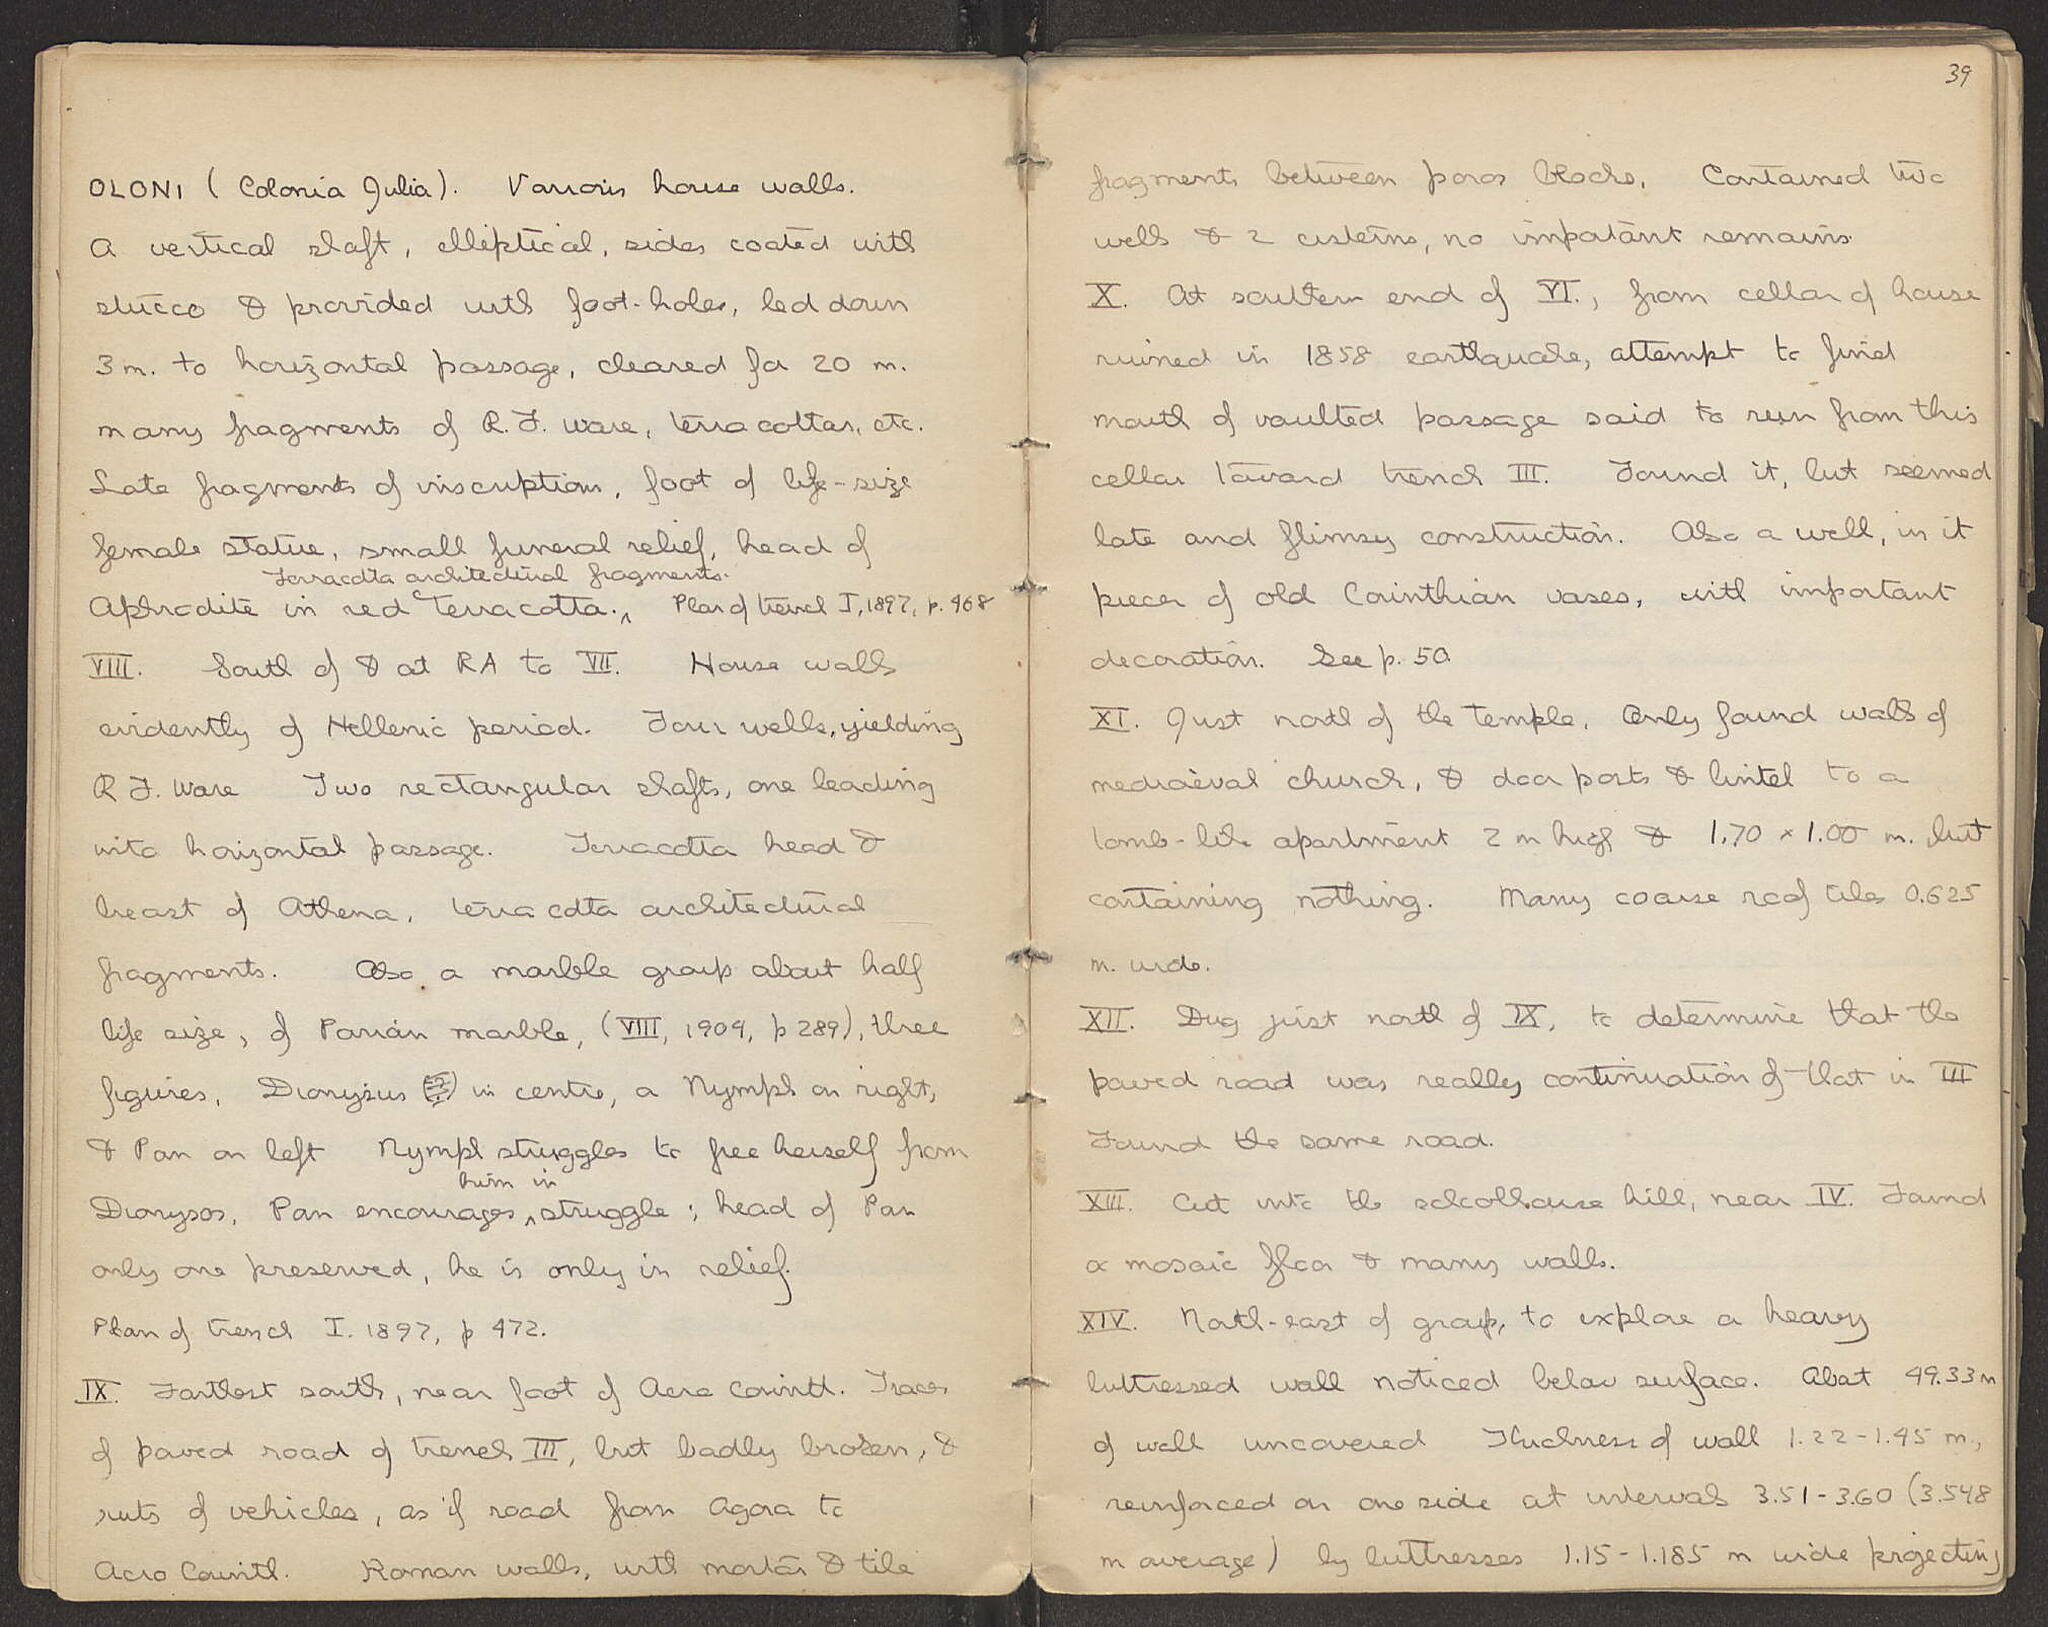 OLONI (Colonia Julia). Various house walls.
A vertical shaft, elliptical, sides coated with
stucco & provided with foot-holes, led down
3 m. to horizontal passage, cleared for 20 m.
many fragments of R.F. ware, terracottas, etc.
Late fragments of inscriptions, foot of life-size
female statue, small funeral relief, head of
Terracotta architectural fragments.
Aphrodite in red terracotta.‸ Plan of trench I, 1897, p. 468
VIII. South of & at RA to VII. House walls
evidently of Hellenic period. Four wells, yielding
R F. Ware Two rectangular shafts, one leading
into horizontal passage. Terracotta head &
breast of Athena, terracotta architectural
fragments. Also a marble group about half
life size, of Parian marble, (VIII, 1904, p 289), three
figures, Dionysus in centre, a Nymph on right,
& Pan on left Nymph struggles to free herself from
him in
Dionysos, Pan encourages ‸ struggle; head of Pan
only one preserved, he is only in relief.
Plan of trench I. 1897, p 472.
IX. Farthest south, near foot of Acro Corinth. Traces
of paved road of trench III, but badly broken, &
ruts of vehicles, as if road from Agora to
Acro Corinth. Roman walls, with mortar & tile
39
fragments between poros blocks. Contained two
wells & 2 cisterns, no important remains.
X. At southern end of VI., from cellar of house
ruined in 1858 earthquake, attempt to find
mouth of vaulted passage said to run from this
cellar toward trench III. Found it, but seemed
late and flimsy construction. Also a well, in it
pieces of old Corinthian vases, with important
decoration. See p. 50.
XI. Just north of the temple. Only found walls of
mediaeval church, & door posts & lintel to a
tomb-like apartment 2 m high & 1.70 x 1.00 m. but
containing nothing. Many coarse roof tiles 0.625
m. wide.
XII. Dug just north of IX, to determine that the
paved road was really continuation of that in III
Found the same road.
XIII. Cut into the schoolhouse hill, near IV. Found
a mosaic floor & many walls.
XIV. North-east of group, to explore a heavy
buttressed wall noticed below surface. About 49.33 m
of wall uncovered Thickness of wall 1.22-1.45 m.,
reinforced on one side at intervals 3.51-3.60 (3.548
m average) by buttresses 1.15-1.185 m wide projecting